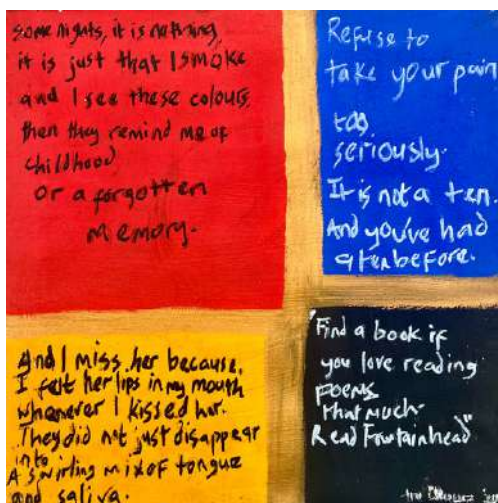 some nights, it is nothing,
it is just that I smoke
and I see these colours,
then they remind me of
childhood
Or a forgotten
memory.
Refuse to
take your pain
too
seriously.
It is not a ten.
And you've had
a ten before.
And I miss her because,
I felt her lips in my mouth
whenever I kissed her.
They did not just disappear
into
A swirling mix of tongue
and saliva.
"Find a book if
you love reading
poems
that much-
Read Fountainhead"